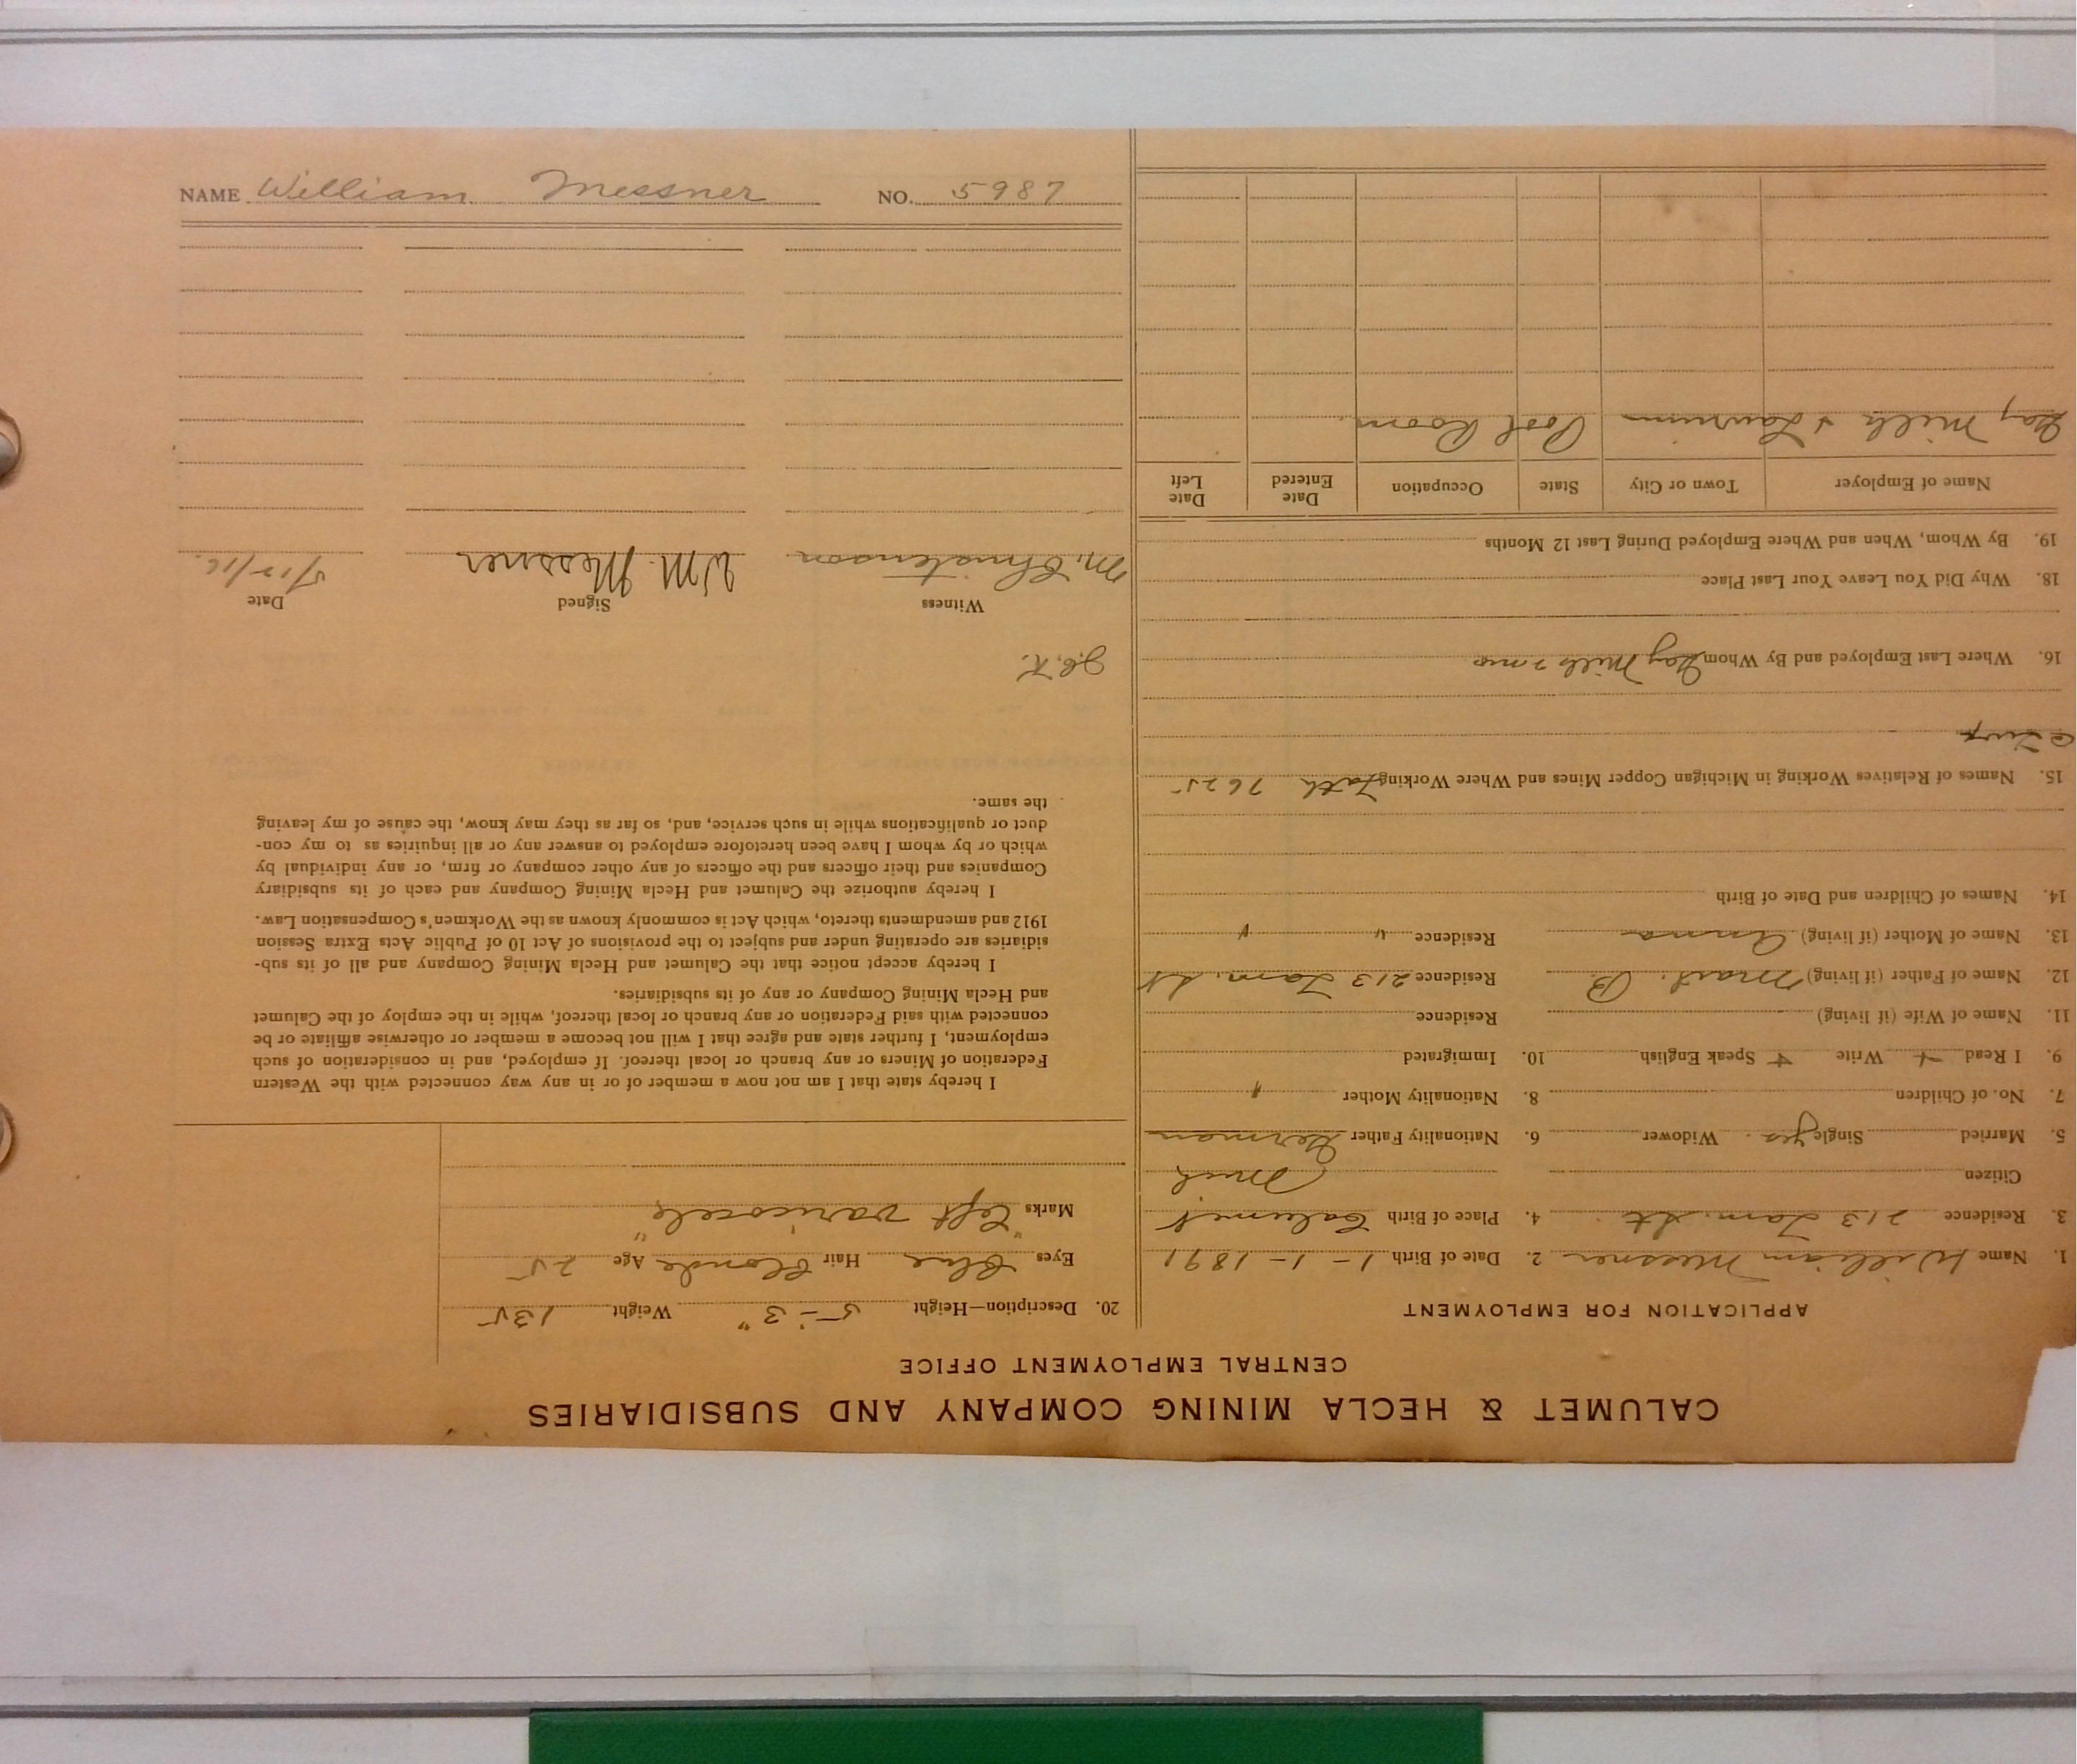 CALUMET & HECLA MINING COMPANY AND SUBSIDIARIES
CENTRAL EMPLOYMENT OFFICE
APPLICATION FOR EMPLOYMENT
1. Name William Messner 2. Date of Birth 1-1-1891
3. Residence 213 Lam. St. 4. Place of Birth Calumet
Citizen Mich
5. Married Single yes. Widower 6. Nationality Father German
7. No. of Children 8. Nationality Mother "
9. I Read + Write + Speak English 10. Immigrated
11. Name of Wife (if living) Residence
12. Name of Father (if living) B. Residence 213 Lam. St
13. Name of Mother (if living) Anna Residence " "
14. Names of Children and Date of Birth
15. Names of Relatives Working in Michigan Copper Mines and Where Working Fath 7625
16. Where Last Employed and By Whom Gay Mills
18. Why Did You Leave Your Last Place
19. By Whom, When and Where Employed During Last 12 Months
Name of Employer Town or City State Occupation Date Entered Date Left
Gay Mills & Laurium Pool Room
20. Description—Height 5-3" Weight 135
Eyes Blue Hair Blonde Age 25
Marks "Left varicocele"
I hereby state that I am not now a member of or in any way connected with the Western
Federation of Miners or any branch or local thereof. If employed, and in consideration of such
employment, I further state and agree that I will not become a member or otherwise affiliate or be
connected with said Federation or any branch or local thereof, while in the employ of the Calumet
and Hecla Mining Company or any of its subsidiaries.
I hereby accept notice that the Calumet and Hecla Mining Company and all of its sub-
sidiaries are operating under and subject to the provisions of Act 10 of Public Acts Extra Session
1912 and amendments thereto, which Act is commonly known as the Workmen's Compensation Law.
I hereby authorize the Calumet and Hecla Mining Company and each of its subsidiary
Companies and their officers and the officers of any other company or firm, or any individual by
which or by whom I have been heretofore employed to answer any or all inquiries as to my con-
duct or qualifications while in such service, and, so far as they may know, the cause of my leaving
the same.
J.C.K.
Witness Signed Date
M. Christenson WM. Messner
NAME William Messner NO. 5987